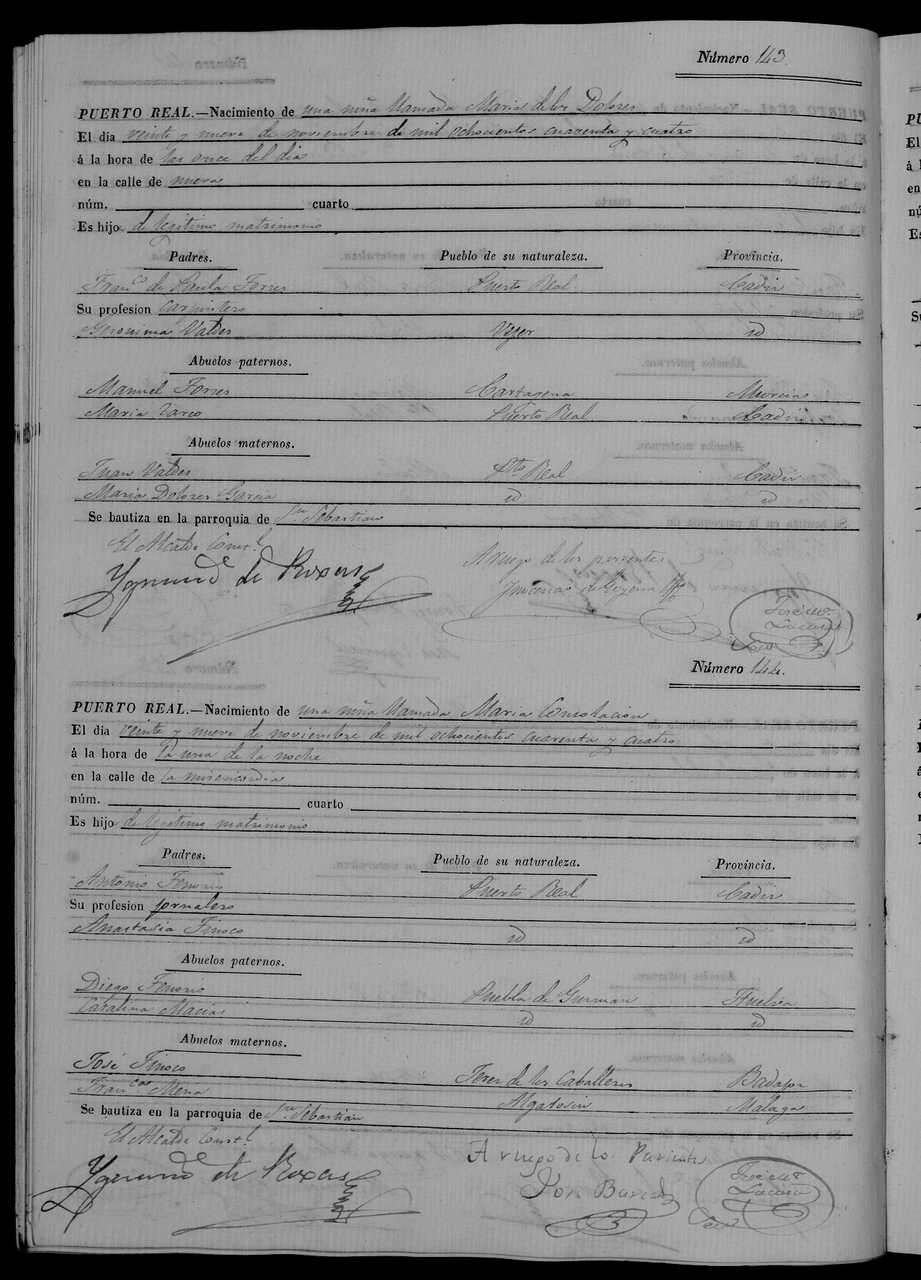 Número 143.
PUERTO REAL.—Nacimiento de una niña llamada Maria de los Dolores
El dia veinte y nueve de noviembre de mil ochocientos cuarenta y cuatro
á la hora de las once del dia
en la calle de nueva
núm. cuarto
Es hijo de legitimo matrimonio
Padres. Pueblo de su naturaleza. Provincia.
Fran.co de Paula Torres Puerto Real Cadiz
Su profesion carpintero
Geronima Valdes Vejer id
Abuelos paternos.
Manuel Torres Cartagena Murcia
Maria Puerto Real Cadiz
Abuelos maternos.
Juan Valdes Pto Real Cadiz
Maria Dolores Garcia id id
Se bautiza en la parroquia de Sn Sebastian
El Alcalde Const.l
Ygnacio de Roxas
A ruego de los parientes
de Goyena
José M.
Lacasa
Srio
Número 144.
PUERTO REAL.—Nacimiento de una niña llamada Maria Consolacion
El dia veinte y nueve de noviembre de mil ochocientos cuarenta y cuatro
á la hora de la una de la noche
en la calle de la misericordia
núm. cuarto
Es hijo de legitimo matrimonio
Padres. Pueblo de su naturaleza. Provincia.
Antonio Tenorio Puerto Real Cadiz
Su profesion jornalero
Anastasia Tinoco id id
Abuelos paternos.
Diego Tenorio Puebla de Guzman Huelva
Catalina Macias id id
Abuelos maternos.
José Tinoco Jerez de los Caballeros Badajoz
Fran.cas Mena Algatosin Malaga
Se bautiza en la parroquia de Sn Sebastian
El Alcalde Const.l
Ygnacio de Roxas
A ruego de los Parientes
José M.
Lacasa
Srio